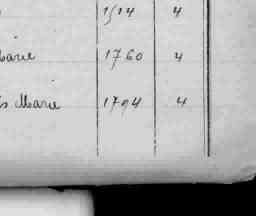 1514 4
Marie 1760 4
Marie 1794 4